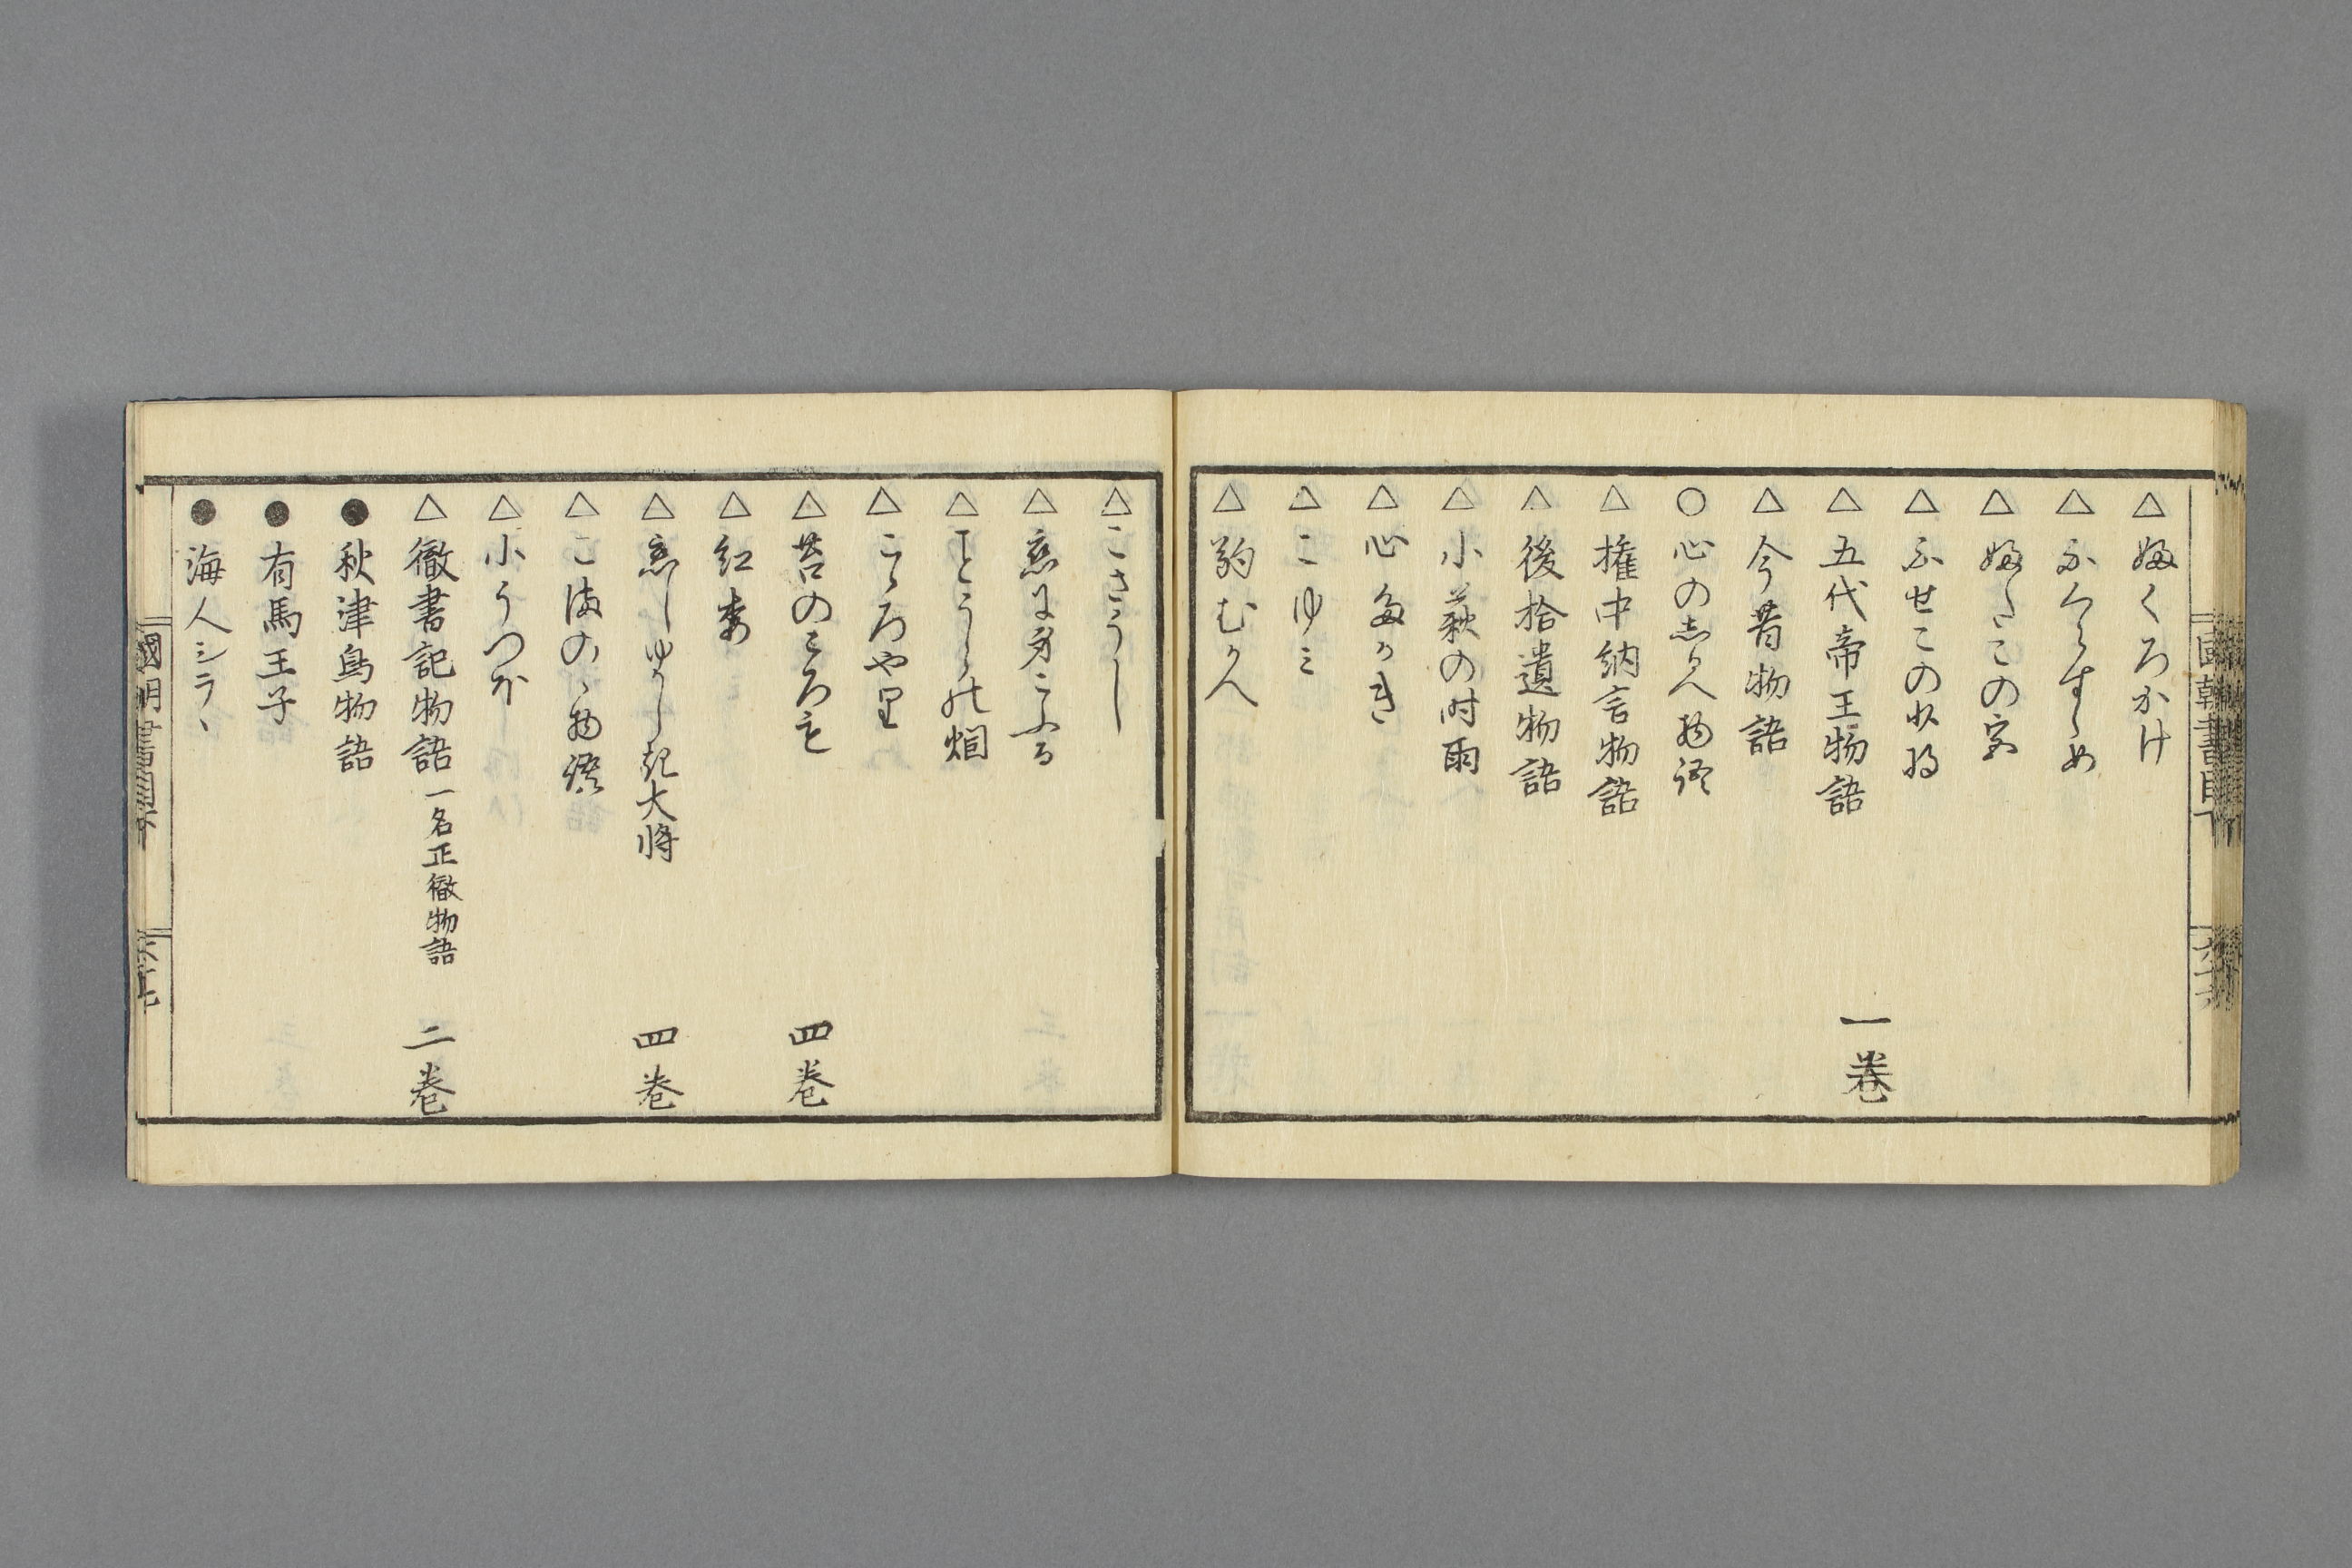 國朝書目下 六十六
△ ふくろかけ
△ ふくらすゝめ
△ ふたこの
△ ふせこの少将
△ 五代帝王物語 一巻
△ 今昔物語
○ 心のしるへ物語
△ 権中納言物語
△ 後拾遺物語
△ 小萩の時雨
△ 心たかき
△ こゆミ
△ 駒むかへ
△ こさうし
△ 恋に身こふる
△ ことうらの烟
△ こゝろやり
△ 苔のころも 四巻
△ 紅葉
△ 恋しゆかしき大将 四巻
△ こまのゝ物語
△ 小うつほ
△ 徹書記物語 一名正徹物語 二巻
● 秋津島物語
● 有馬王子
● 海人シラヽ
國朝書目下 六十七